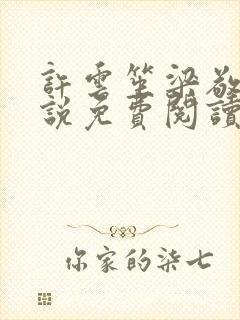 許雲笙梁敬
說免費閱讀
你家的柒七